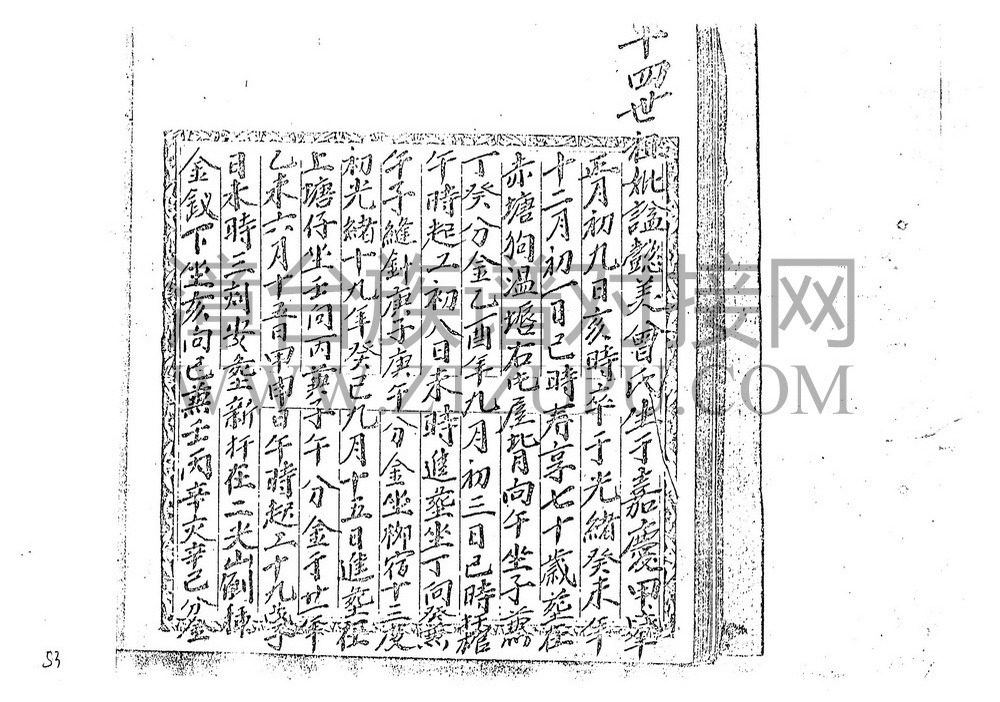 十四世祖妣諡懿美曾氏生于嘉慶甲
正月初九日亥時卒于光緒癸未年
十二月初一日巳時寿享七十歲塟在
赤塘狗温堀右屋背向午坐子兼
丁癸分金乙酉年九月初三日巳時
午時起工初八日未時進塟坐丁向癸兼
午子縫針庚子庚午分金坐柳宿十三度
初光緒十九年癸巳九月十五日進塟在
上塘仔坐壬向丙兼子午分金于廿一年
乙未六月十五日甲申日午時起工十九
日未時三刻安塟新扦在二光山
金釵下坐亥向巳兼壬丙辛亥辛巳分金
53
普台族谱对接网
WWW.ZTZUPU.COM